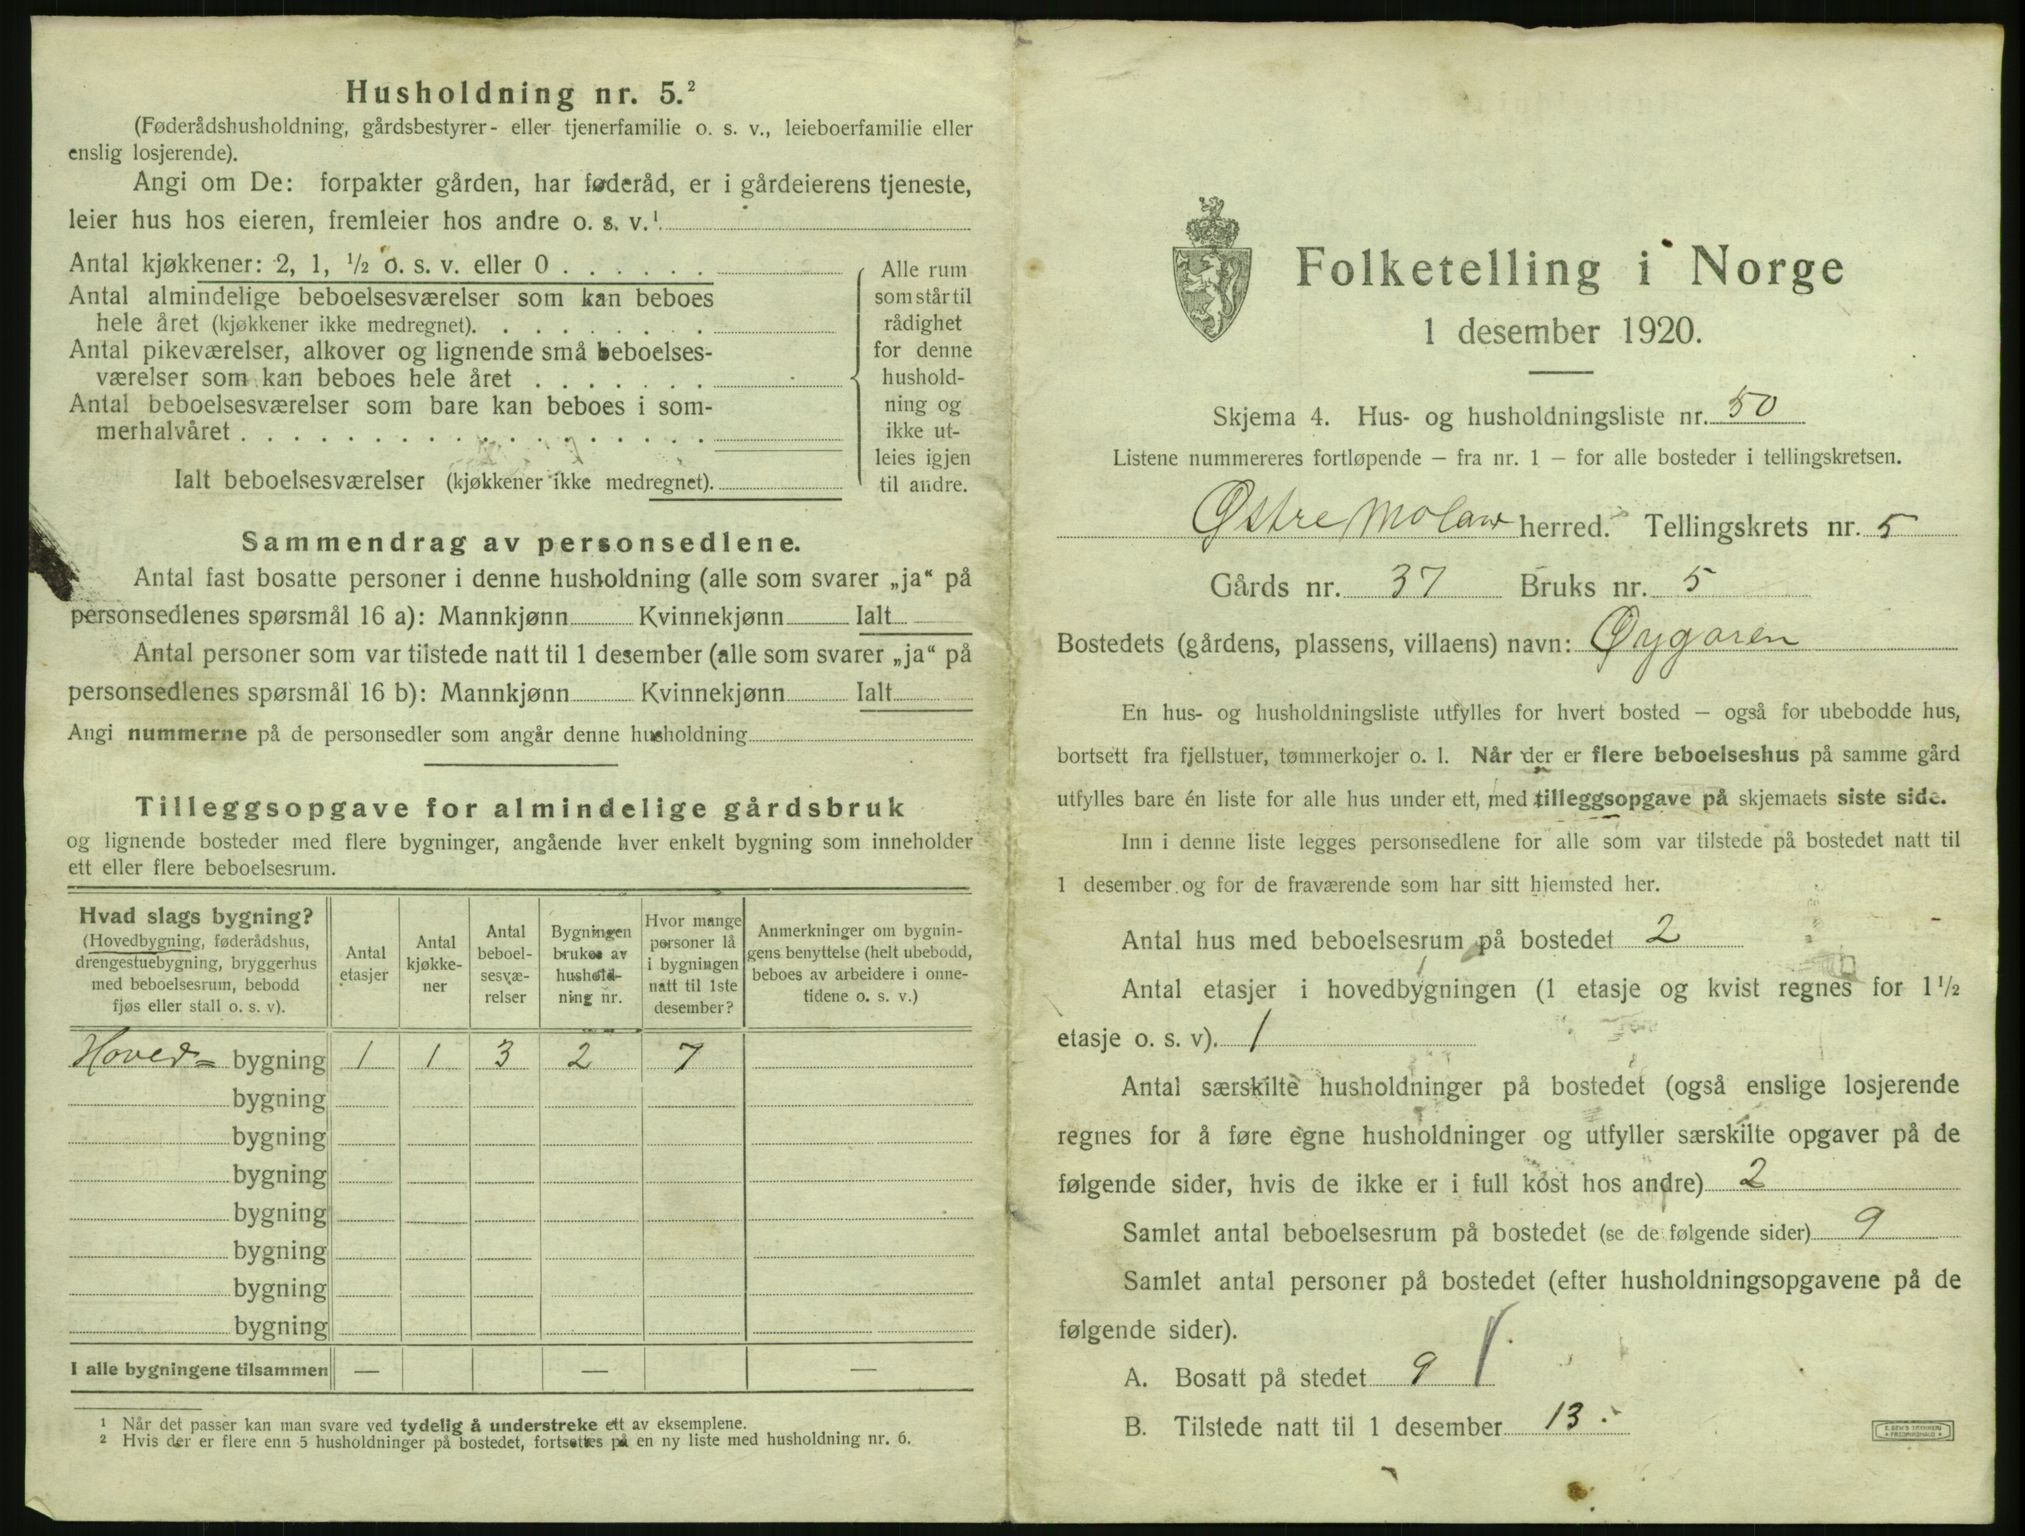 Husholdning nr. 5.²
(Føderådshusholdning, gårdsbestyrer- eller tjenerfamilie o. s. v., leieboerfamilie eller
enslig losjerende).
Angi om De: forpakter gården, har føderåd, er i gårdeierens tjeneste,
leier hus hos eieren, fremleier hos andre o. s. v.¹
Antal kjøkkener: 2, 1, ½ o. s. v. eller 0 . . . . . .
Antal almindelige beboelsesværelser som kan beboes
hele året (kjøkkener ikke medregnet). . . . . . . . .
Antal pikeværelser, alkover og lignende små beboelses-
værelser som kan beboes hele året . . . . . . .
Antal beboelsesværelser som bare kan beboes i som-
merhalvåret . . . . . . . . . . . . . . . . . .
Ialt beboelsesværelser (kjøkkener ikke medregnet).
Alle rum
som står til
rådighet
for denne
hushold-
ning og
ikke ut-
leies igjen
til andre.
Sammendrag av personsedlene.
Antal fast bosatte personer i denne husholdning (alle som svarer „ja“ på
personsedlenes spørsmål 16 a): Mannkjønn Kvinnekjønn Ialt
Antal personer som var tilstede natt til 1 desember (alle som svarer „ja“ på
personsedlenes spørsmål 16 b): Mannkjønn Kvinnekjønn Ialt
Angi nummerne på de personsedler som angår denne husholdning
Tilleggsopgave for almindelige gårdsbruk
og lignende bosteder med flere bygninger, angående hver enkelt bygning som inneholder
ett eller flere beboelsesrum.
Hvad slags bygning?
(Hovedbygning, føderådshus,
drengestuebygning, bryggerhus
med beboelsesrum, bebodd
fjøs eller stall o. s. v).
Antal
etasjer
Antal
kjøkke-
ner
Antal
beboel-
sesvæ-
relser
Bygningen
brukes av
hushold-
ning nr.
Hvor mange
personer lå
i bygningen
natt til 1ste
desember?
Anmerkninger om bygnin-
gens benyttelse (helt ubebodd,
beboes av arbeidere i onne-
tidene o. s. v.)
Hoved= bygning 1 1 3 2 7
bygning
bygning
bygning
bygning
bygning
bygning
bygning
I alle bygningene tilsammen — — —
¹ Når det passer kan man svare ved tydelig å understreke ett av eksemplene.
² Hvis der er flere enn 5 husholdninger på bostedet, fortsettes på en ny liste med husholdning nr. 6.
Folketelling i Norge
1 desember 1920.
Skjema 4. Hus- og husholdningsliste nr. 50
Listene nummereres fortløpende — fra nr. 1 — for alle bosteder i tellingskretsen.
Østre Moland herred. Tellingskrets nr. 5
Gårds nr. 37 Bruks nr. 5
Bostedets (gårdens, plassens, villaens) navn: Øygaren
En hus- og husholdningsliste utfylles for hvert bosted — også for ubebodde hus,
bortsett fra fjellstuer, tømmerkojer o. l. Når der er flere beboelseshus på samme gård
utfylles bare én liste for alle hus under ett, med tilleggsopgave på skjemaets siste side.
Inn i denne liste legges personsedlene for alle som var tilstede på bostedet natt til
1 desember og for de fraværende som har sitt hjemsted her.
Antal hus med beboelsesrum på bostedet 2
Antal etasjer i hovedbygningen (1 etasje og kvist regnes for 1½
etasje o. s. v). 1
Antal særskilte husholdninger på bostedet (også enslige losjerende
regnes for å føre egne husholdninger og utfyller særskilte opgaver på de
følgende sider, hvis de ikke er i full kost hos andre) 2
Samlet antal beboelsesrum på bostedet (se de følgende sider) 9
Samlet antal personer på bostedet (efter husholdningsopgavene på de
følgende sider).
A. Bosatt på stedet 9
B. Tilstede natt til 1 desember 13